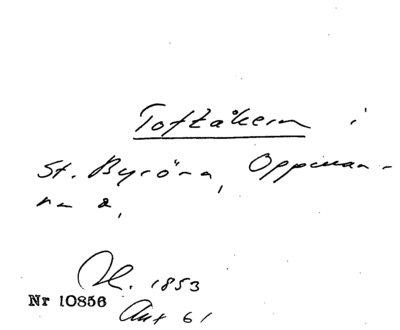 Toftåkern i
St. Byröna, Oppman-
na s,
1853
Nr 10856
Ant 61